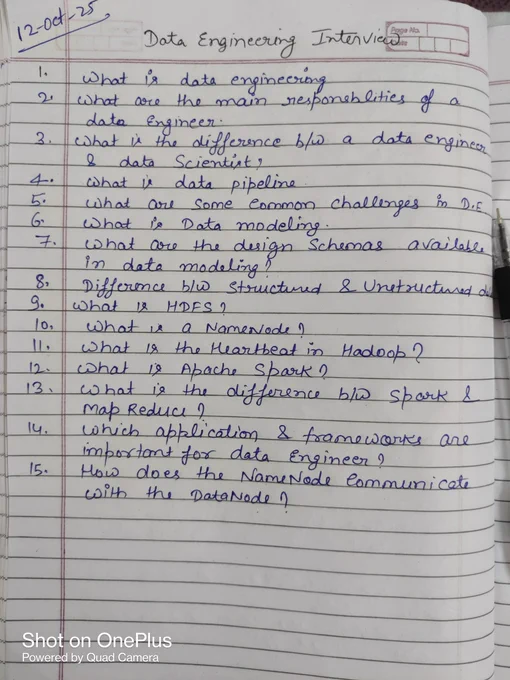 12-Oct-25
Data Engineering Interview
Page No.
Date
1. What is data engineering
2. What are the main responsblities of a
data Engineer.
3. What is the difference b/w a data engineer
& data Scientist?
4. What is data pipeline
5. What are some common challenges in D.E
6. What is Data modeling.
7. What are the design Schemas available
in data modeling?
8. Difference b/w Structured & Unstructured da
9. What is HDFS?
10. What is a NameNode?
11. What is the Heartbeat in Hadoop?
12. What is Apache Spark?
13. What is the difference b/w Spark &
Map Reduce?
14. Which application & frameworks are
important for data Engineer?
15. How does the NameNode Communicate
with the DataNode?
Shot on OnePlus
Powered by Quad Camera